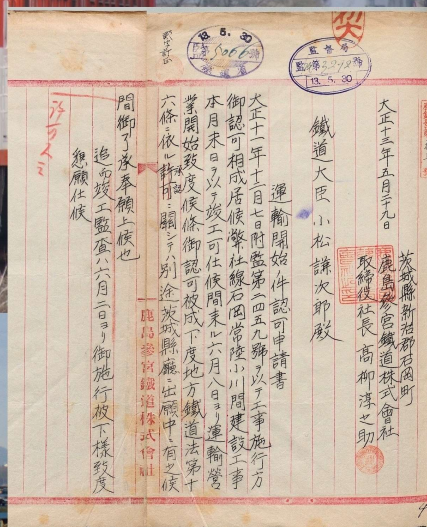 大正十三年五月二十九日
茨城縣新治郡石岡町
鹿島參宮鐵道株式會社
取締役社長 高柳淳之助
鐵道大臣 小松謙次郎殿
運輸開始ノ件認可申請書
大正十一年十二月七日附監第二四五九號ヲ以テ工事施行方
御認可相成居候弊社線石岡常陸小川間建設工事
本月末日ヲ以テ竣工可仕候間來ル六月八日ヨリ運輸營
業開始致度候條御認可被成下度地方鐵道法第十
六條ニ依ル ニ關シテハ別途茨城縣廳ニ出願中ニ有之候
間御了承奉願上候也
追而竣工監査ハ六月二日ヨリ御施行被下樣致度
懇願仕候
鹿島參宮鐵道株式會社
13.5.30
監督局
13.5.30